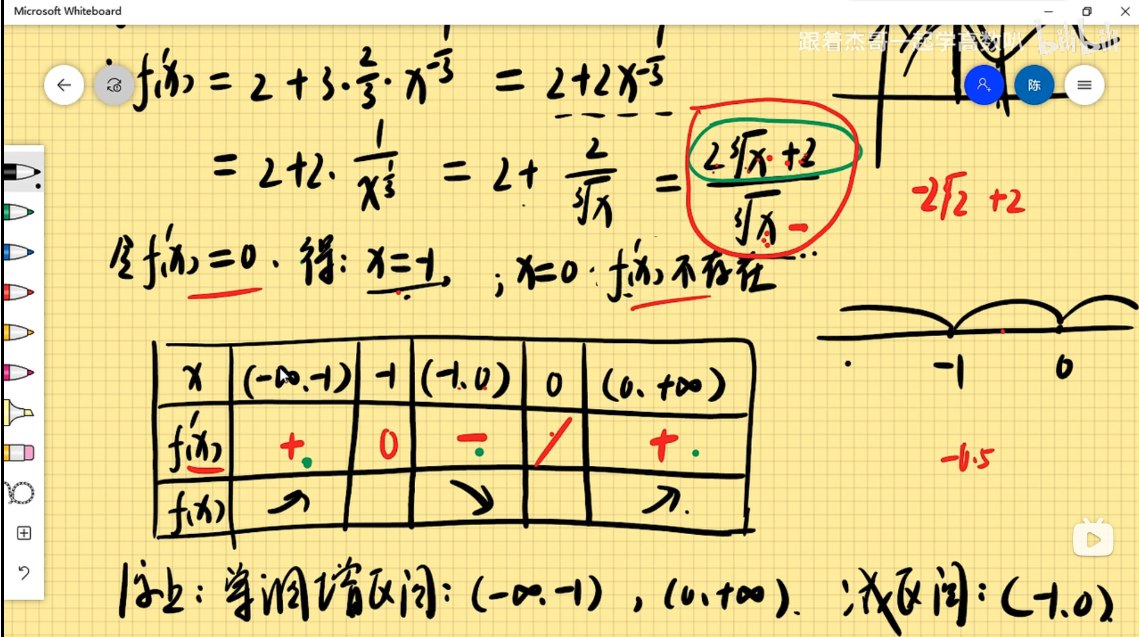 Microsoft Whiteboard
跟着杰哥一起学高数叭 bilibili
陈
f'(x) = 2 + 3·2/3·x^(-1/3) = 2+2x^(-1/3)
= 2+2·1/x^(1/3) = 2+ 2/∛x = (2∛x+2)/∛x
-2∛2 +2
令f'(x)=0. 得: x=-1, ; x=0. f'(x)不存在
-1 0
x (-∞,-1) -1 (-1,0) 0 (0,+∞)
f'(x) + 0 - / +
-0.5
f(x) ↗ ↘ ↗
综上: 单调增区间: (-∞,-1), (0,+∞). 减区间: (-1,0)